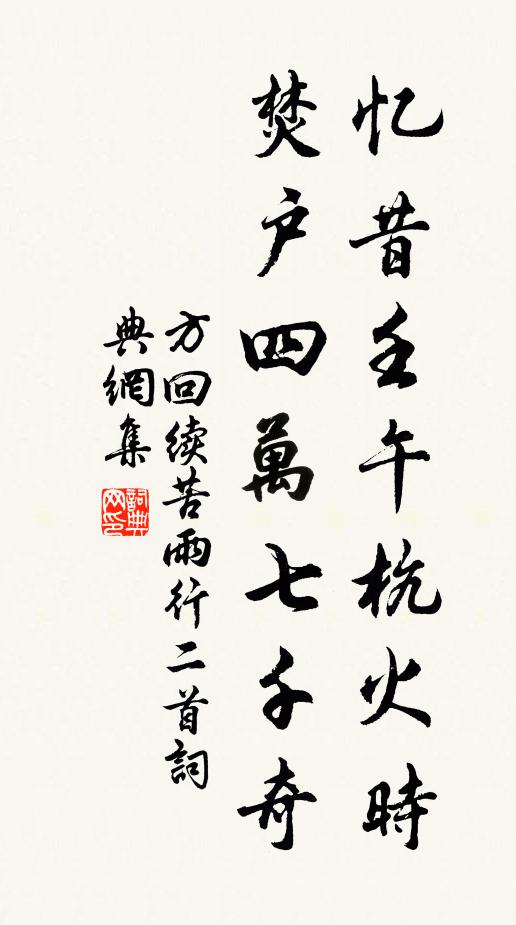 忆昔壬午杭火時
焚户四萬七千奇
方回续苦雨行二首詞
典網集
詞典
网印